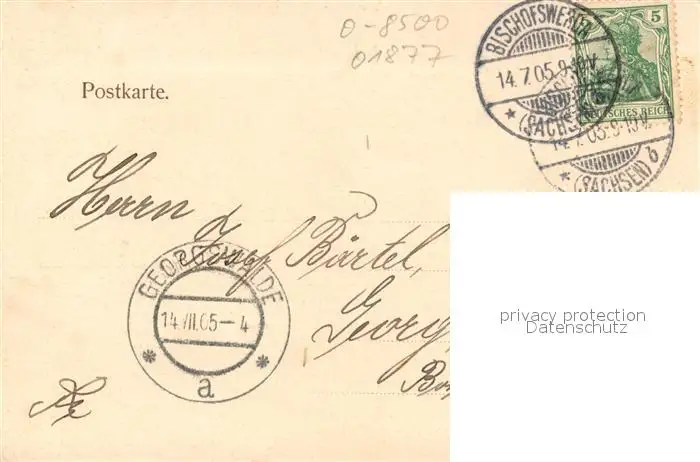 0-8500
01877
Postkarte.
BISCHOFSWERDA
14.7.05.9-10V.
*(SACHSEN)
5
DEUTSCHES REICH
14.7.05.9-10V.
*(SACHSEN) b
Herrn Josef Bärtel,
GEORGSWALDE
14.VII.05-4
* a *
Georg
privacy protection
Datenschutz